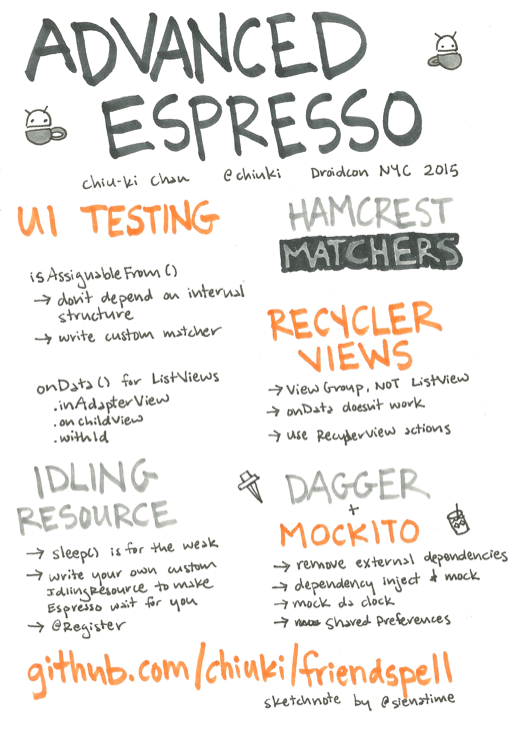 ADVANCED
ESPRESSO
chiu-ki chan @chiuki Droidcon NYC 2015
UI TESTING
isAssignableFrom()
→ don't depend on internal
structure
→ write custom matcher
onData() for ListViews
.inAdapterView
.onchildView
.withId
HAMCREST
MATCHERS
RECYCLER
VIEWS
→ ViewGroup, NOT ListView
→ onData doesn't work
→ use RecyclerView actions
IDLING
RESOURCE
→ sleep() is for the weak
→ write your own custom
IdlingResource to make
Espresso wait for you
→ @Register
DAGGER
+
MOCKITO
→ remove external dependencies
→ dependency inject & mock
→ mock da clock
→ Shared Preferences
github.com/chiuki/friendspell
sketchnote by @sienatime